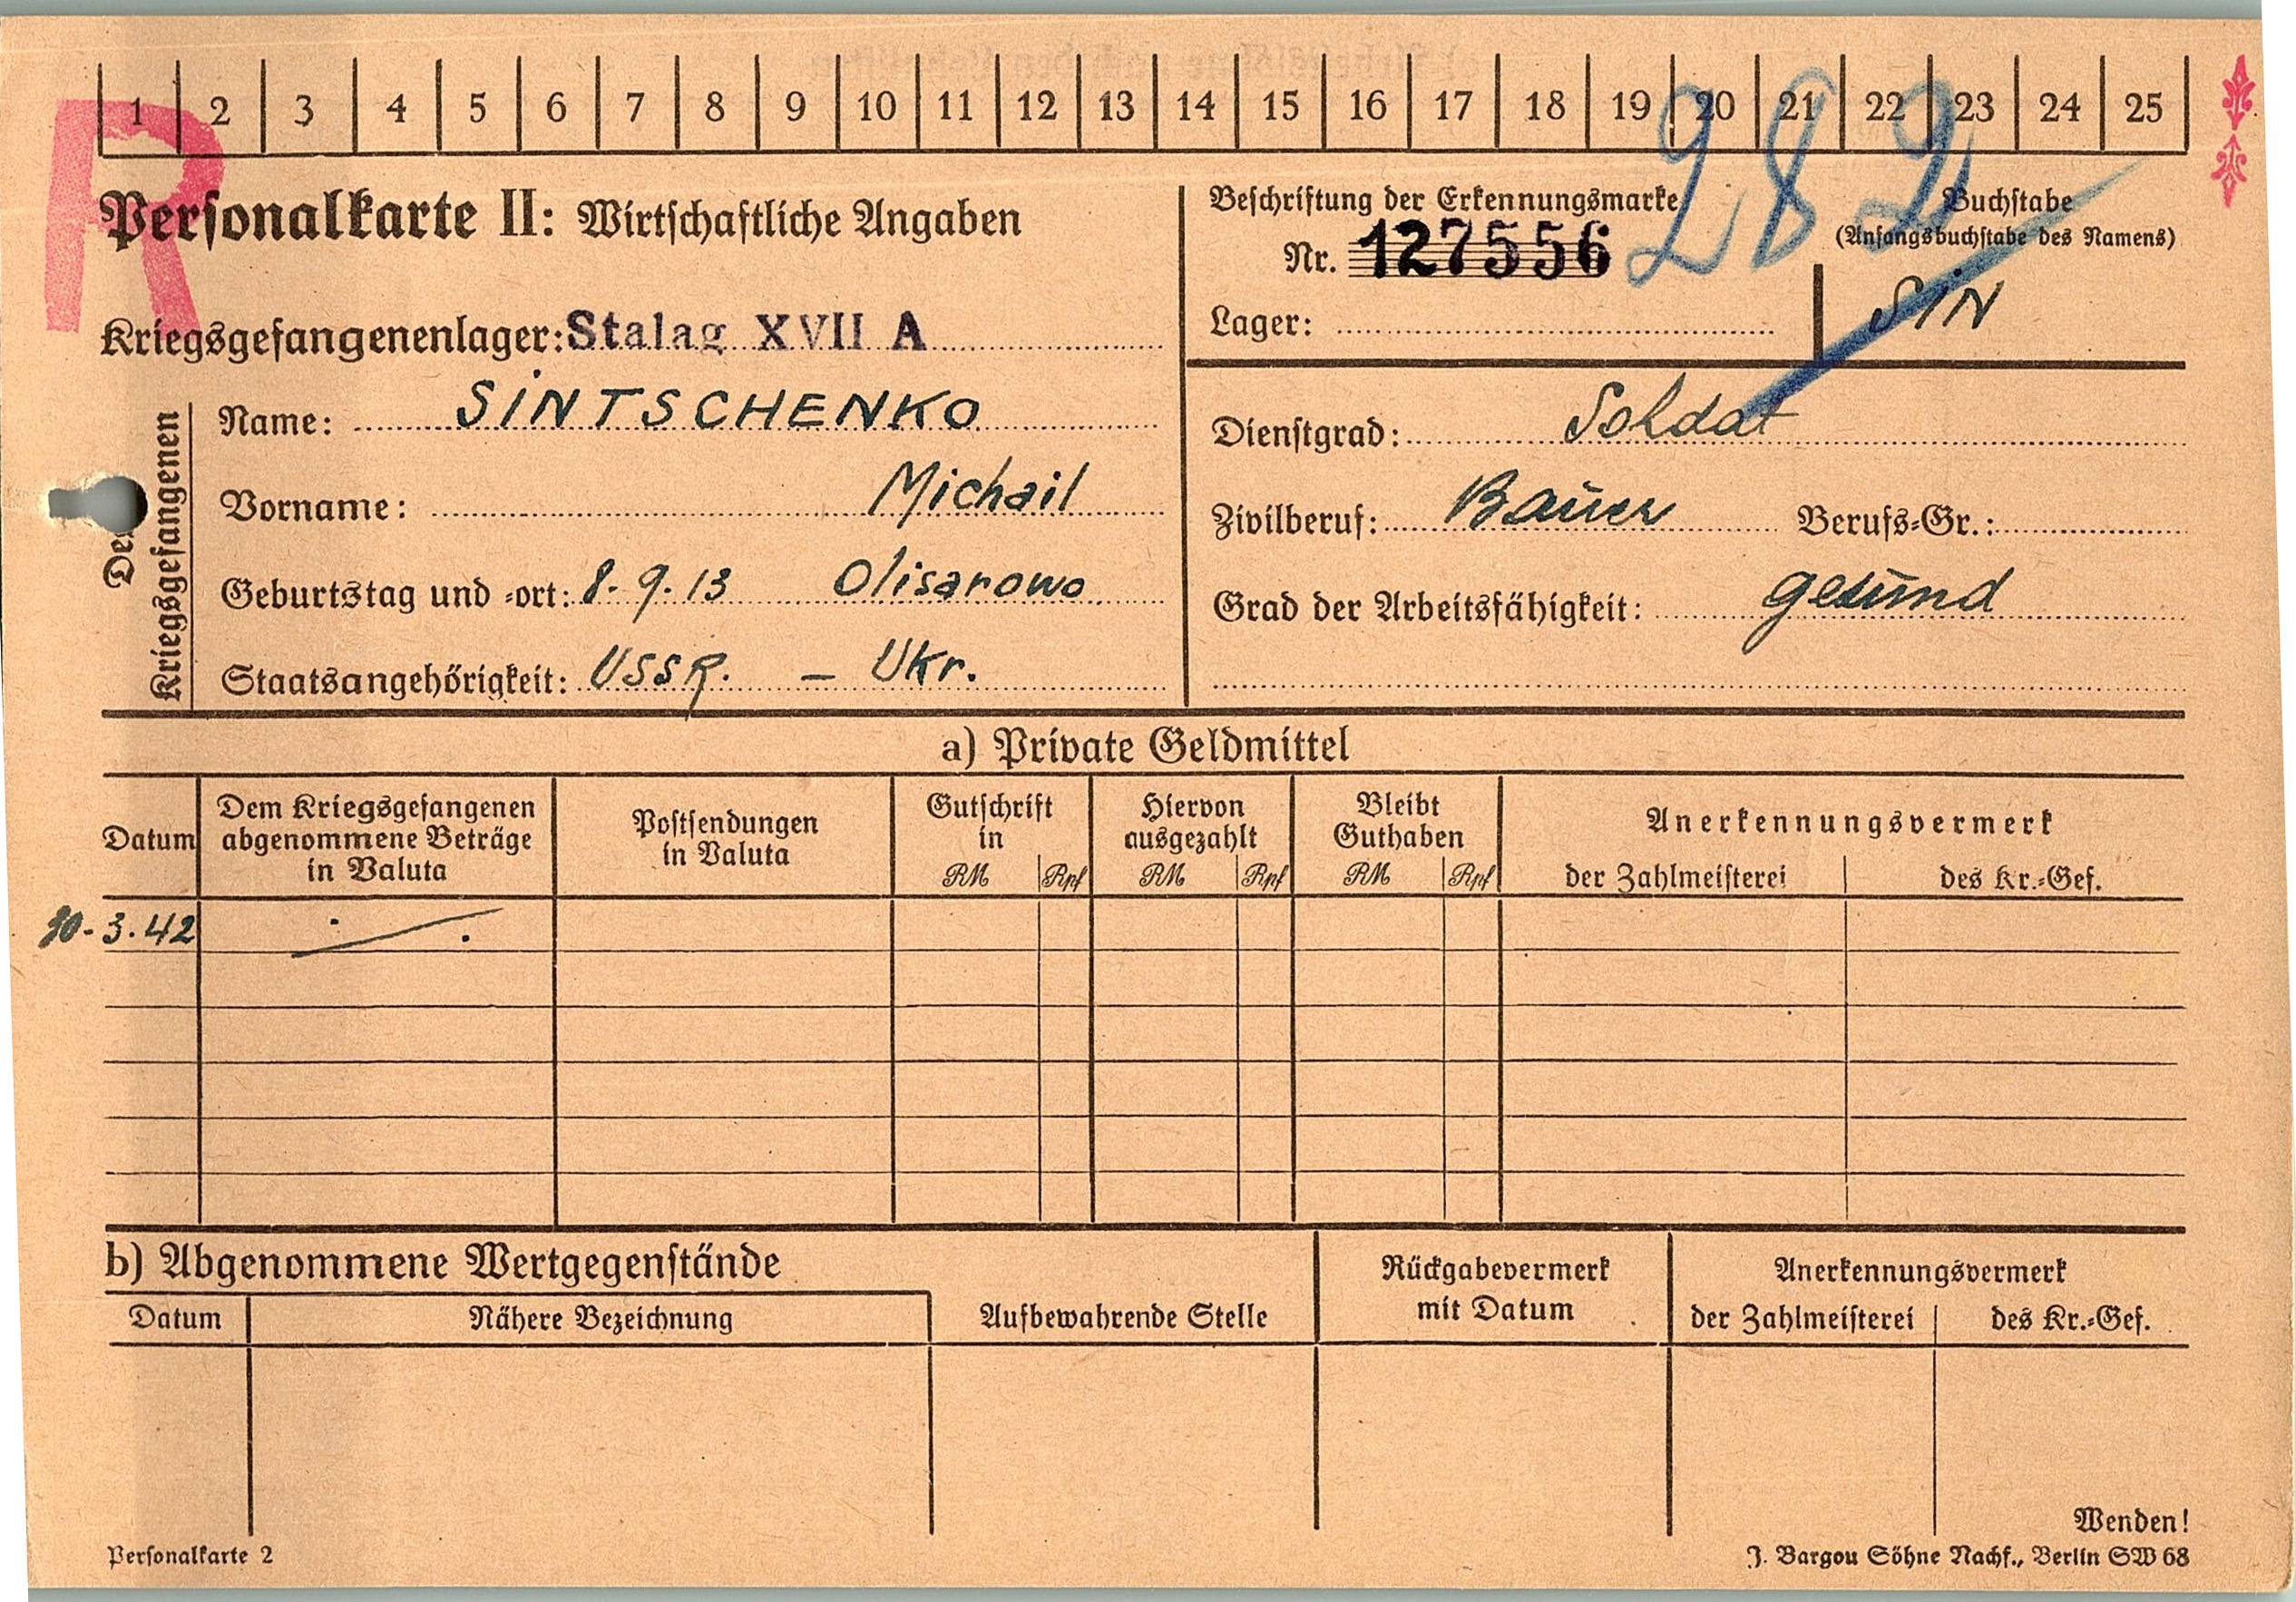 1 2 3 4 5 6 7 8 9 10 11 12 13 14 15 16 17 18 19 20 21 22 23 24 25
R
282
Personalkarte II: Wirtschaftliche Angaben
Kriegsgefangenenlager: Stalag XVII A
Beschriftung der Erkennungsmarke
Nr. 127556
Lager:
Buchstabe
(Anfangsbuchstabe des Namens)
SIN
Des Kriegsgefangenen
Name: SINTSCHENKO
Vorname: Michail
Geburtstag und -ort: 8.9.13 Olisarowo
Staatsangehörigkeit: USSR. – Ukr.
Dienstgrad: Soldat
Zivilberuf: Bauer Berufs-Gr.:
Grad der Arbeitsfähigkeit: gesund
a) Private Geldmittel
Datum
Dem Kriegsgefangenen
abgenommene Beträge
in Valuta
Postsendungen
in Valuta
Gutschrift
in
RM Rpf
Hiervon
ausgezahlt
RM Rpf
Bleibt
Guthaben
RM Rpf
Anerkennungsvermerk
der Zahlmeisterei des Kr.-Gef.
30.3.42
b) Abgenommene Wertgegenstände
Datum Nähere Bezeichnung
Aufbewahrende Stelle
Rückgabevermerk
mit Datum
Anerkennungsvermerk
der Zahlmeisterei des Kr.-Gef.
Wenden!
Personalkarte 2
J. Bargou Söhne Nachf., Berlin SW 68